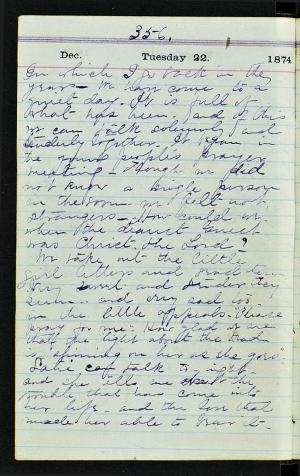 356.
Dec. Tuesday 22. 1874
On which I go back in the
years - We have come to a
quiet day. It is full of
what has been, and of this
we can talk solemnly and
tenderly together. It began in
the young people's prayer
meeting - Though we did
not know a single person
in the room we felt not
strangers - How could we
when the dearest Guest
was Christ, the Lord?
We take out the little
girl letters and read them
Very and tender they
seem - and very sad too
in the little appeals. "Please
pray for me." How glad we are
that the light about the
is shining on her as she goes.
can talk to night
and she tells me of the
trouble that has come into
her life - and the love that
made her able to bear it -